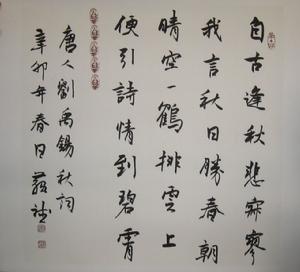 自古逢秋悲寂寥
我言秋日勝春朝
晴空一鶴排雲上
便引詩情到碧霄
唐人劉禹錫秋詞
辛卯年春日